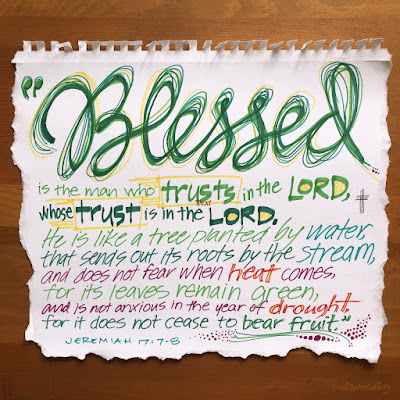 "Blessed
is the man who trusts in the LORD,
whose trust is in the LORD.
He is like a tree planted by water,
that sends out its roots by the stream,
and does not fear when heat comes,
for its leaves remain green,
and is not anxious in the year of drought,
for it does not cease to bear fruit."
JEREMIAH 17:7-8